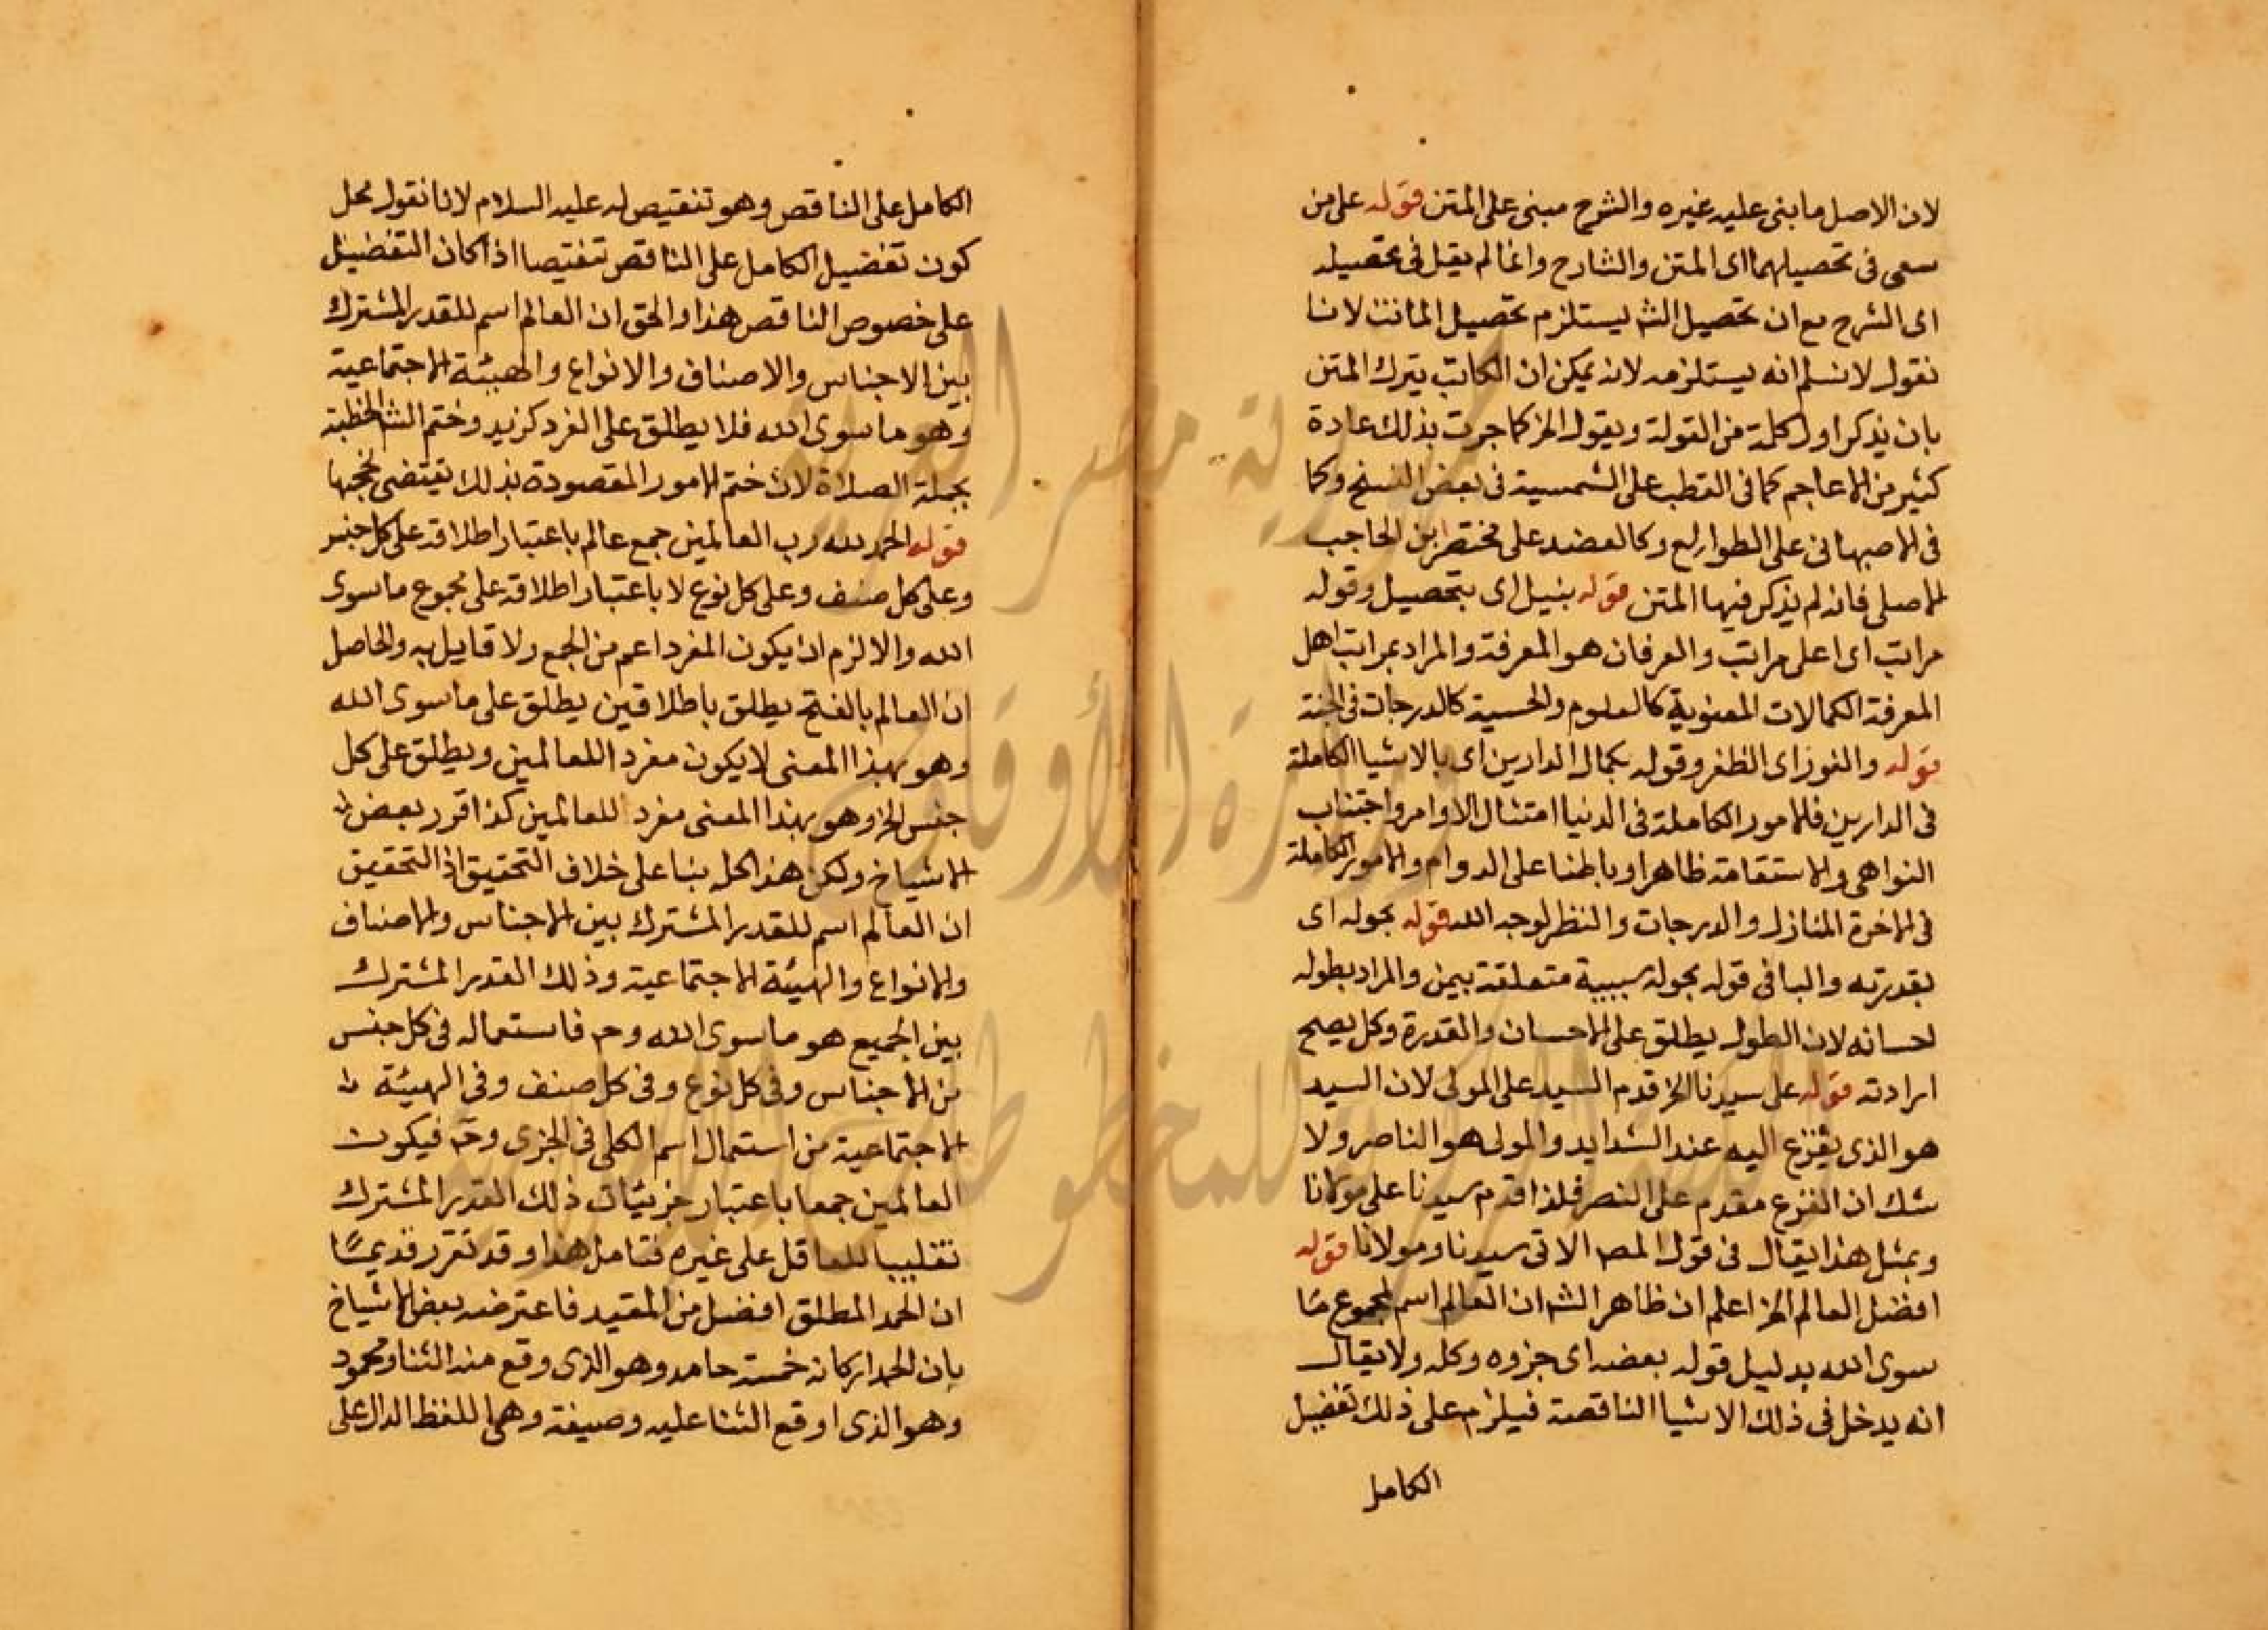 لان الاصل ما بنى عليه غيره والشرح مبنى على المتن قوله على من
سعى فى تحصيلهما اى المتن والشارح وانما لم يقل فى تحصيله
اى الشرح مع ان تحصيل الشـ يستلزم تحصيل الماتن لانا
نقول لا نسلم انه يستلزمه لانه يمكن ان الكاتب يترك المتن
بان يذكر اول كلمة من القولة ويقول الخ كما جرت بذلك عادة
كثير من الاعاجم كما فى القطب على الشمسية فى بعض النسخ وكما
فى الاصبهانى على الطوالع وكالعضد على مختصر ابن الحاجب
الاصلى فانه لم يذكر فيها المتن قوله بنيل اى بتحصيل وقوله
مراتب اى اعلى مراتب والعرفان هو المعرفة والمراد بمراتب اهل
المعرفة الكمالات المعنوية كالعلوم والحسية كالدرجات فى الجنة
قوله والفوز اى الظفر وقوله بكمال الدارين اى بالاشيا الكاملة
فى الدارين فالامور الكاملة فى الدنيا امتثال الاوامر واجتناب
النواهى والاستقامة ظاهرا وباطنا على الدوام والامور الكاملة
فى الاخرة المنازل والدرجات والنظر لوجه الله قوله بحوله اى
بقدرته والبا فى قوله بحوله سببية متعلقة بيمن والمراد بطوله
احسانه لان الطول يطلق على الاحسان والقدرة وكل يصح
ارادته قوله على سيدنا الخ قدم السيد على المولى لان السيد
هو الذى يفزع اليه عند الشدايد والمولى هو الناصر ولا
شك ان الفزع مقدم على النصر فلذا قدم سيدنا على مولانا
وبمثل هذا يقال فى قول المصـ الاتى سيدنا ومولانا قوله
افضل العالم الخ اعلم ان ظاهر الشـ ان العالم اسم لمجموع ما
سوى الله بدليل قوله بعضه اى جزوه وكله ولا يقال
انه يدخل فى ذلك الاشيا الناقصة فيلزم على ذلك تفضيل
الكامل
الكامل على الناقص وهو تنقيص له عليه السلام لانا نقول محل
كون تفضيل الكامل على الناقص تنقيصا اذا كان التفضيل
على خصوص الناقص هذا والحق ان العالم اسم للقدر المشترك
بين الاجناس والاصناف والانواع والهيئة الاجتماعية
وهو ما سوى الله فلا يطلق على الفرد كزيد وختم الشـ الخطبة
بجملة الصلاة لان ختم الامور المقصودة بذلك يقتضى نجحها
قوله الحمد لله رب العالمين جمع عالم باعتبار اطلاقه على كل جنس
وعلى كل صنف وعلى كل نوع لا باعتبار اطلاقه على مجموع ما سوى
الله والا لزم ان يكون المفرد اعم من الجمع ولا قايل به والحاصل
ان العالم بالفتح يطلق باطلاقين يطلق على ما سوى الله
وهو بهذا المعنى لا يكون مفردا للعالمين ويطلق على كل
جنس الخ وهو بهذا المعنى مفرد للعالمين كذا قرر بعض
الاشياخ ولكن هذا كله بنا على خلاف التحقيق اذ التحقيق
ان العالم اسم للقدر المشترك بين الاجناس والاصناف
والانواع والهيئة الاجتماعية وذلك القدر المشترك
بين الجميع هو ما سوى الله وحـ فاستعماله فى كل جنس
من الاجناس وفى كل نوع وفى كل صنف وفى الهيئة
الاجتماعية من استعمال اسم الكلى فى الجزى وحـ فيكون
العالمين جمعا باعتبار جزئيات ذلك القدر المشترك
تغليبا للعاقل على غيره فتامل هذا وقد تقرر قديما
ان الحمد المطلق افضل من المقيد فاعترضه بعض الاشياخ
بان الحمد اركانه خمسة حامد وهو الذى وقع منه الثنا ومحمود
وهو الذى اوقع الثنا عليه وصيغة وهى اللفظ الدال على
جمهورية مصر العربية
وزارة الأوقاف
المكتبة المركزية للمخطوطات الإسلامية